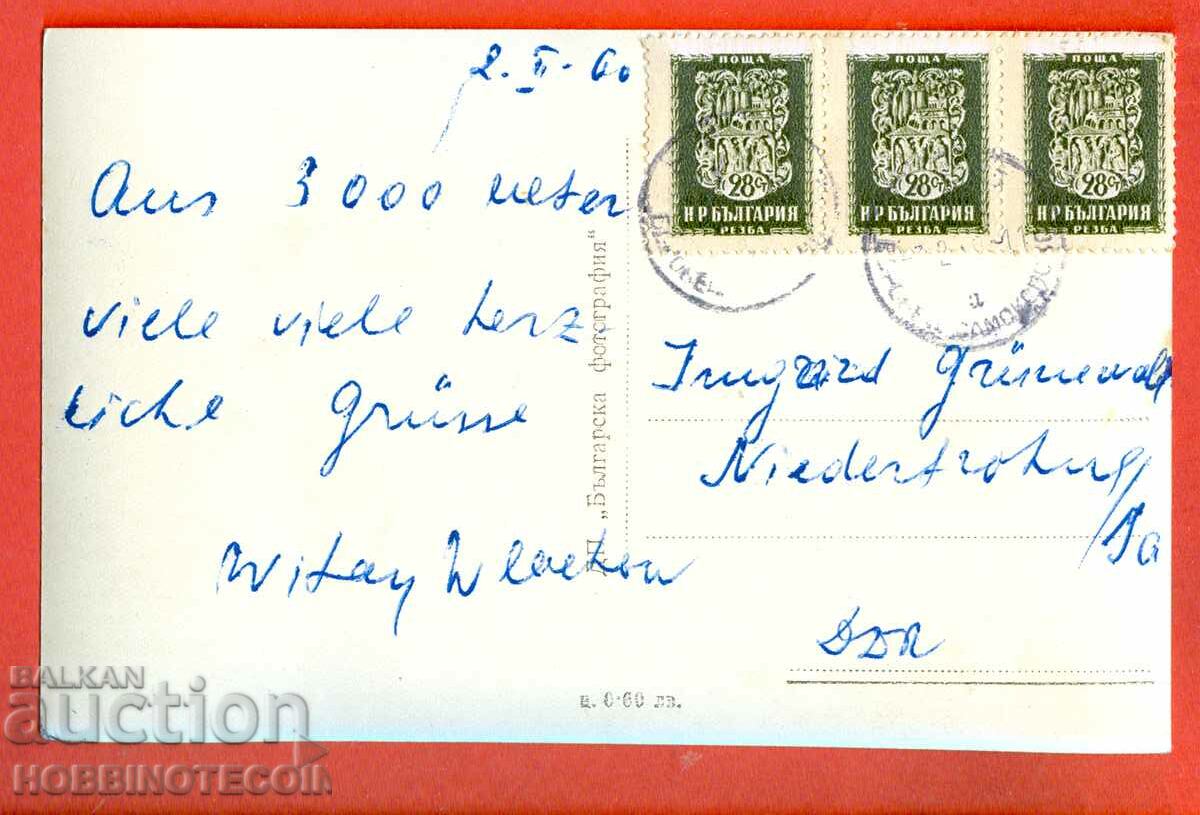 2. II. 60
Aus 3000 meter
viele viele herz-
liche Grüsse
ДП „Българска фотография“
ц. 0·60 лв.
ПОЩА
28 СТ
НР БЪЛГАРИЯ
РЕЗБА
ПОЩА
28 СТ
НР БЪЛГАРИЯ
РЕЗБА
ПОЩА
28 СТ
НР БЪЛГАРИЯ
РЕЗБА
Niederfrohna
/Sa
DDR
BALKAN
auction
HOBBINOTECOIN